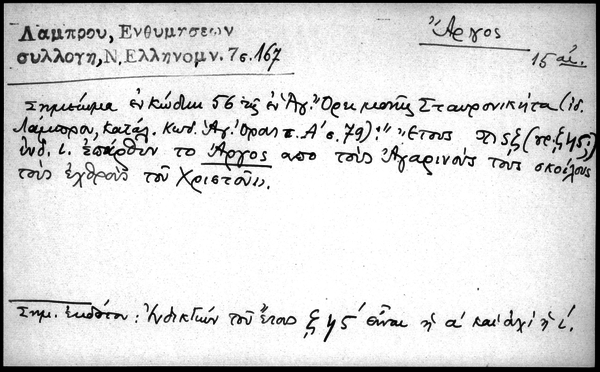 Λάμπρου, Ενθυμήσεων
συλλογή, Ν. Ελληνομν. 7 σ. 167
Ἄργος
15 αἰ.
Σημείωμα ἐν κώδικι 56 τῆς ἐν Ἁγ. Ὄρει μονῆς Σταυρονικήτα (ἰδ.
Λάμπρου, Κατάλ. Κωδ. Ἁγ. Ὄρους τ. Α' σ. 79): "Ἔτους
ἰνδ. ι. ἐπάρθην το Ἄργος απο τοὺς Ἀγαρινοὺς τοὺς σκύλους
τοὺς ἐχθροὺς τοῦ Χριστοῦ».
Σημ. ἐκδότου: Ἰνδικτιών τοῦ ἔτους ϛ ϡ ϛ' εἶναι ἡ α' καὶ ὀχὶ ἡ ι'.